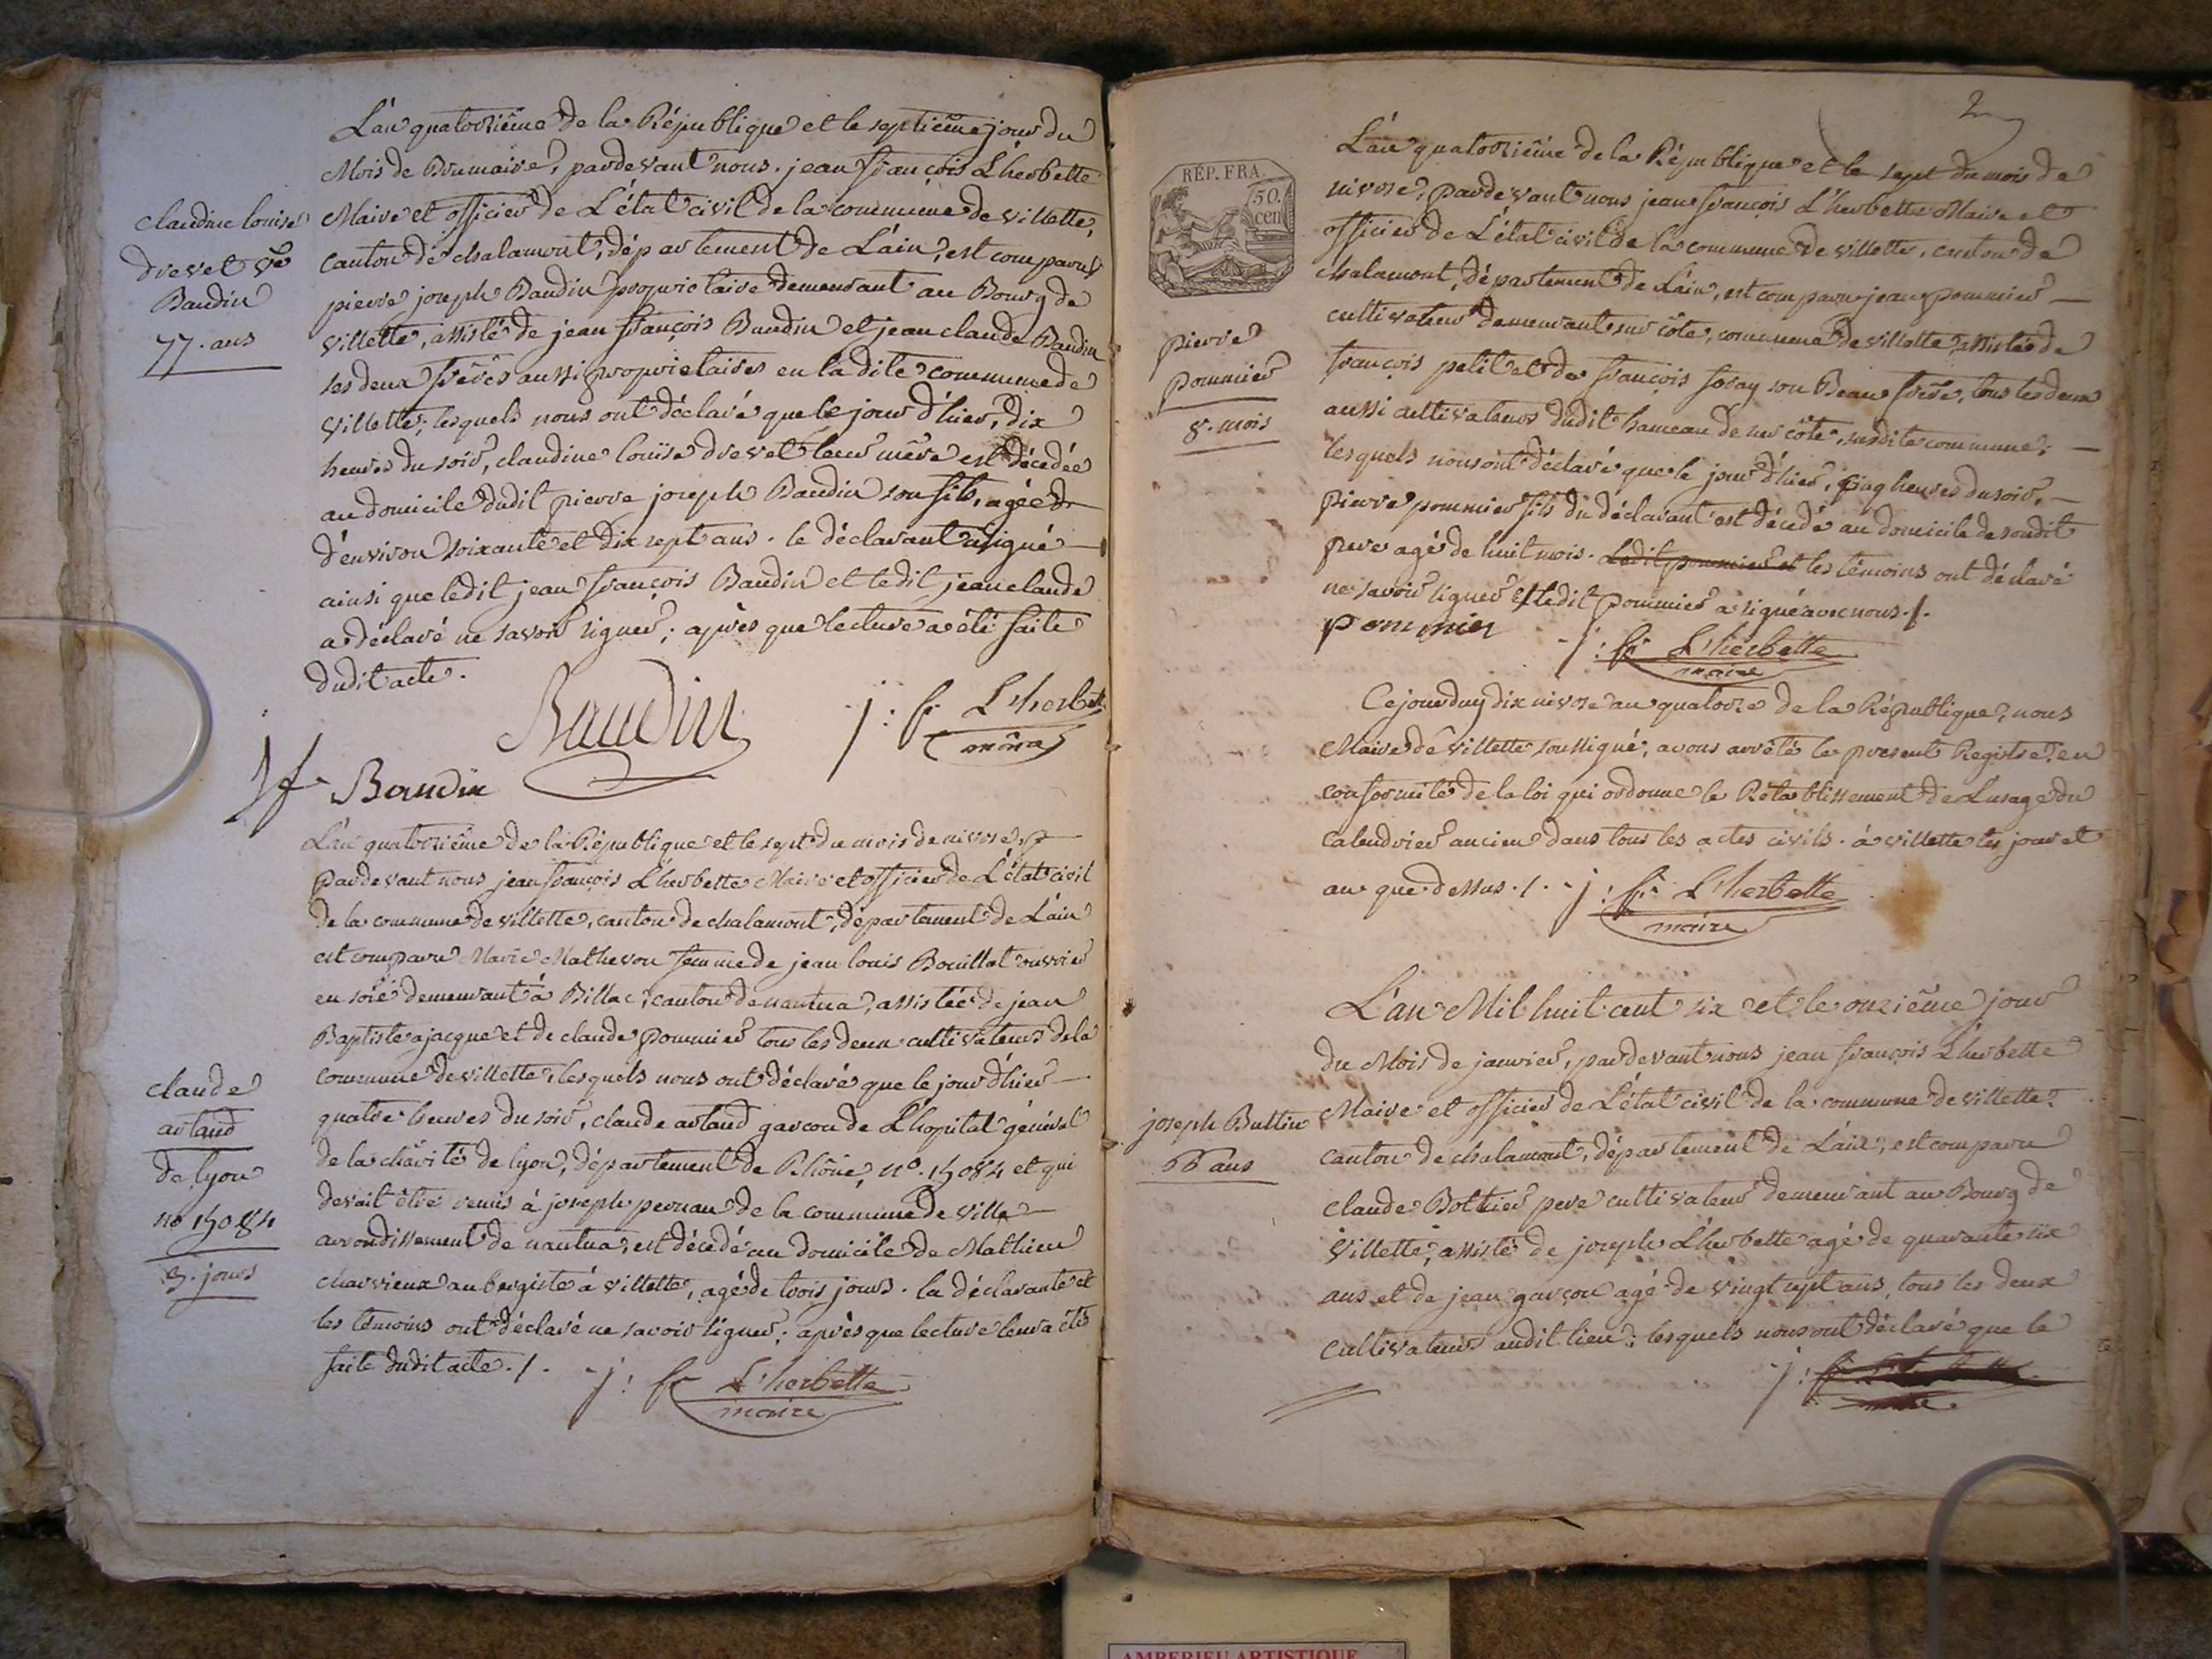 L'an quatorzième de la République et le septième jour du
Mois de Brumaire, pardevant nous jean françois L'herbette
Maire et officier de L'état civil de la commune de villette,
canton de chalamont, département de L'ain, est comparu
pierre joseph Baudin propriétaire demeurant au Bourg de
villette, assisté de jean françois Baudin et jean claude Baudin
ses deux frères aussi propriétaires en la dite commune de
villette; lesquels nous ont déclaré que le jour d'hier, dix
heures du soir, claudine louise drevet leur mère est décedée
au domicile dudit pierre joseph Baudin son fils, agée
d'environ soixante et dix sept ans. le déclarant a signé
ainsi que ledit jean françois Baudin et ledit jean claude
a déclaré ne savoir signer; après que lecture a été faite
dudit acte.
claudine louise
drevet ve
Baudin
77. ans
Baudin
j: f L'herbet
Jf Baudin
L'an quatorzième de la République et le sept du mois de nivose,
pardevant nous jean françois L'herbette Maire et officier de L'état civil
de la commune de villette, canton de chalamont, département de L'ain
est comparu Marie Mathevon femme de jean louis Bouillat ouvrier
en soie demeurant à Billac, canton de nantua, assistée de jean
Baptiste ajacque et de claude pommier tous les deux cultivateurs de la
commune de villette, lesquels nous ont déclaré que le jour d'hier
quatre heures du soir, claude artaud garcon de L'hopital général
de la charité de lyon, département de Rhône, no. 15084 et qui
devait être remis à joseph pernan de la commune de ville
arrondissement de nantua, est décedé au domicile de Mathieu
charvieux aubergiste à villette, agé de trois jours. la déclarante et
les témoins ont déclaré ne savoir signer; après que lecture leur a été
faite dudit acte./.
claude
artaud
de lyon
no 15084
3. jours
j: f L'herbette
maire
2
RÉP. FRA.
50.
cen
L'an quatorzième de la République et le sept du mois de
nivose, pardevant nous jean françois L'herbette Maire et
officier de L'état civil de la commune de villette, canton de
chalamont, département de L'ain, est comparu jean pommier
cultivateur demeurant sur côte, commune de villette, assistés de
françois petit et de françois foray son Beau frère, tous les deux
aussi cultivateurs dudit hameau de sur côte, susdite commune;
lesquels nous ont déclaré que le jour d'hier, cinq heures du soir,
pierre pommier fils du déclarant est décedé au domicile de sondit
pere agé de huit mois. Ledit pommier et les témoins ont déclaré
ne savoir signer et ledit pommier a signé avec nous./.
pierre
pommier
8. mois
pommier
j: f L'herbette
maire
Ce jourduy dix nivose an quatorze de la République, nous
Maire de villette soussigné, avons arrêté le present Registre, en
conformité de la loi qui ordonne le Rétablissement de L'usage du
calendrier ancien dans tous les actes civils. à villette les jour et
an que dessus./. j: f L'herbette
maire
L'an Mil huit cent six et le onzième jour
du Mois de janvier, pardevant nous jean françois L'herbette
Maire et officier de L'état civil de la commune de villette,
canton de chalamont, département de L'ain, est comparu
claude Bottier pere cultivateur demeurant au Bourg de
villette, assisté de joseph L'herbette agé de quarante six
ans et de jean garçon agé de vingt sept ans, tous les deux
cultivateurs audit lieu; lesquels nous ont déclaré que le
joseph Buttin
66 ans
j: f
AMBERIEU ARTISTIQUE